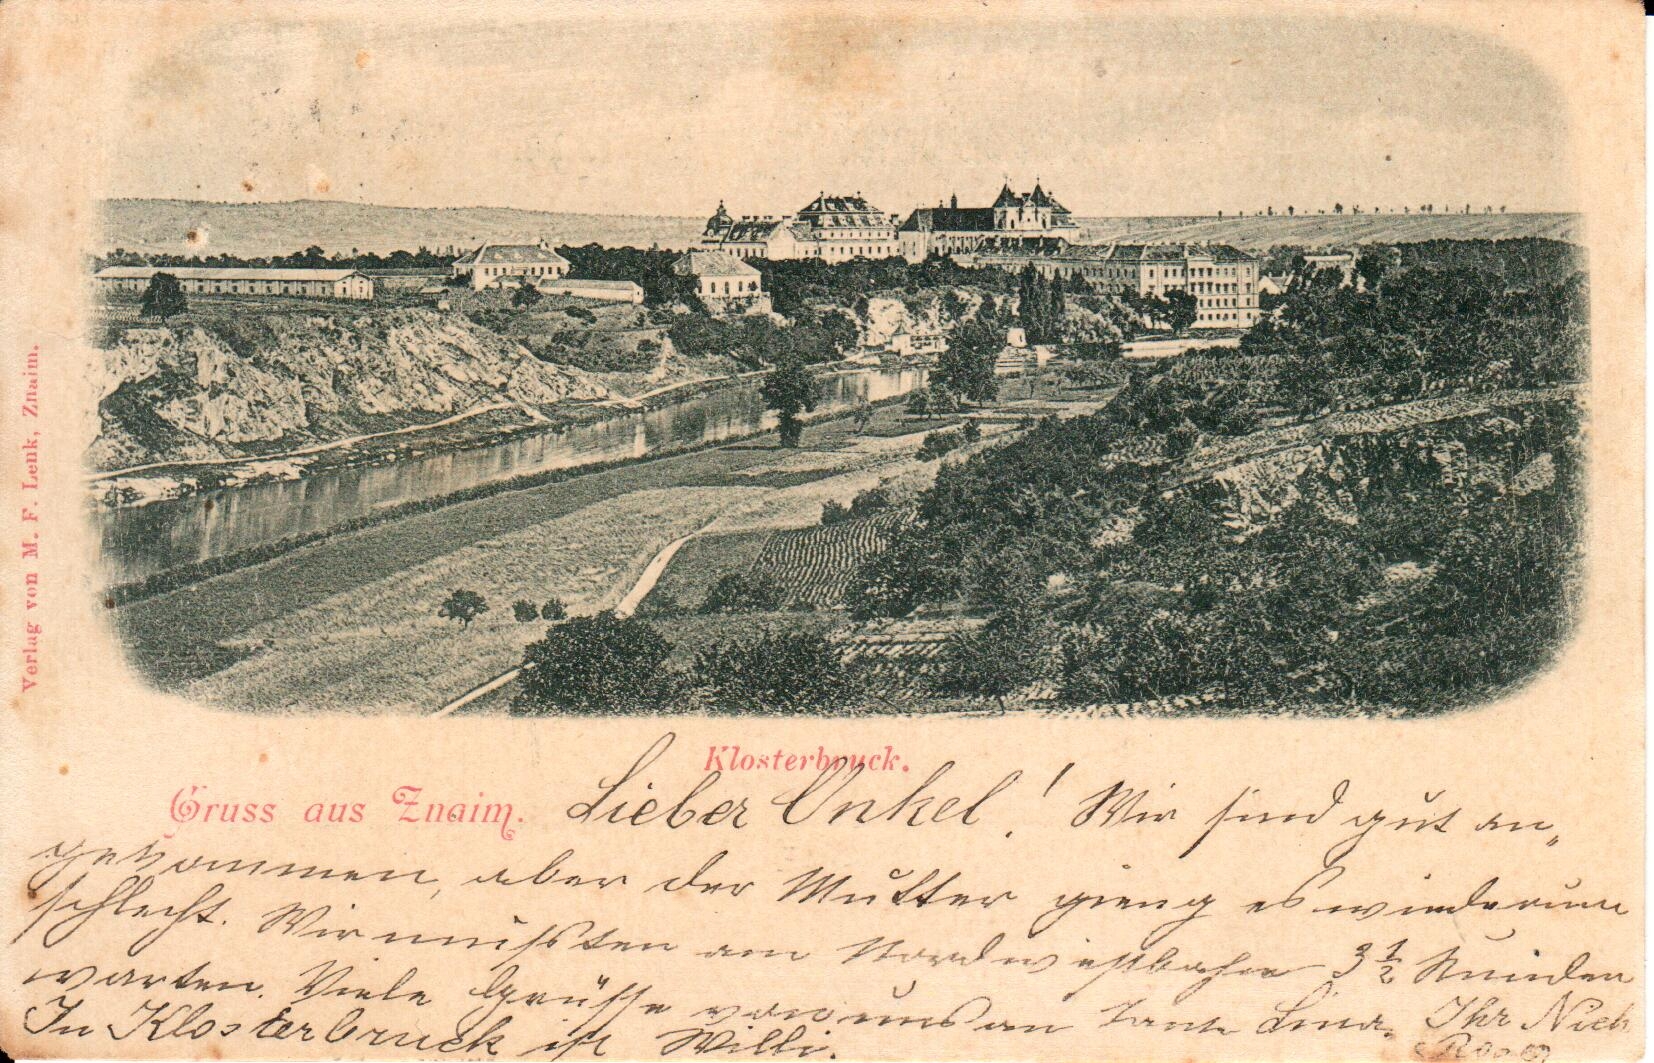 Verlag von M. F. Lenk, Znaim.
Klosterbruck.
Gruss aus Znaim.
Lieber Onkel! Wir sind gut an„
gekommen, aber der Mutter gieng es wiederum
schlecht. Wir mussten am Nordwestbahn 3 1/2 Stunden
warten. Viele Grüsse von uns an Tante Lina. Ihr
In Klosterbruck ist Willi.